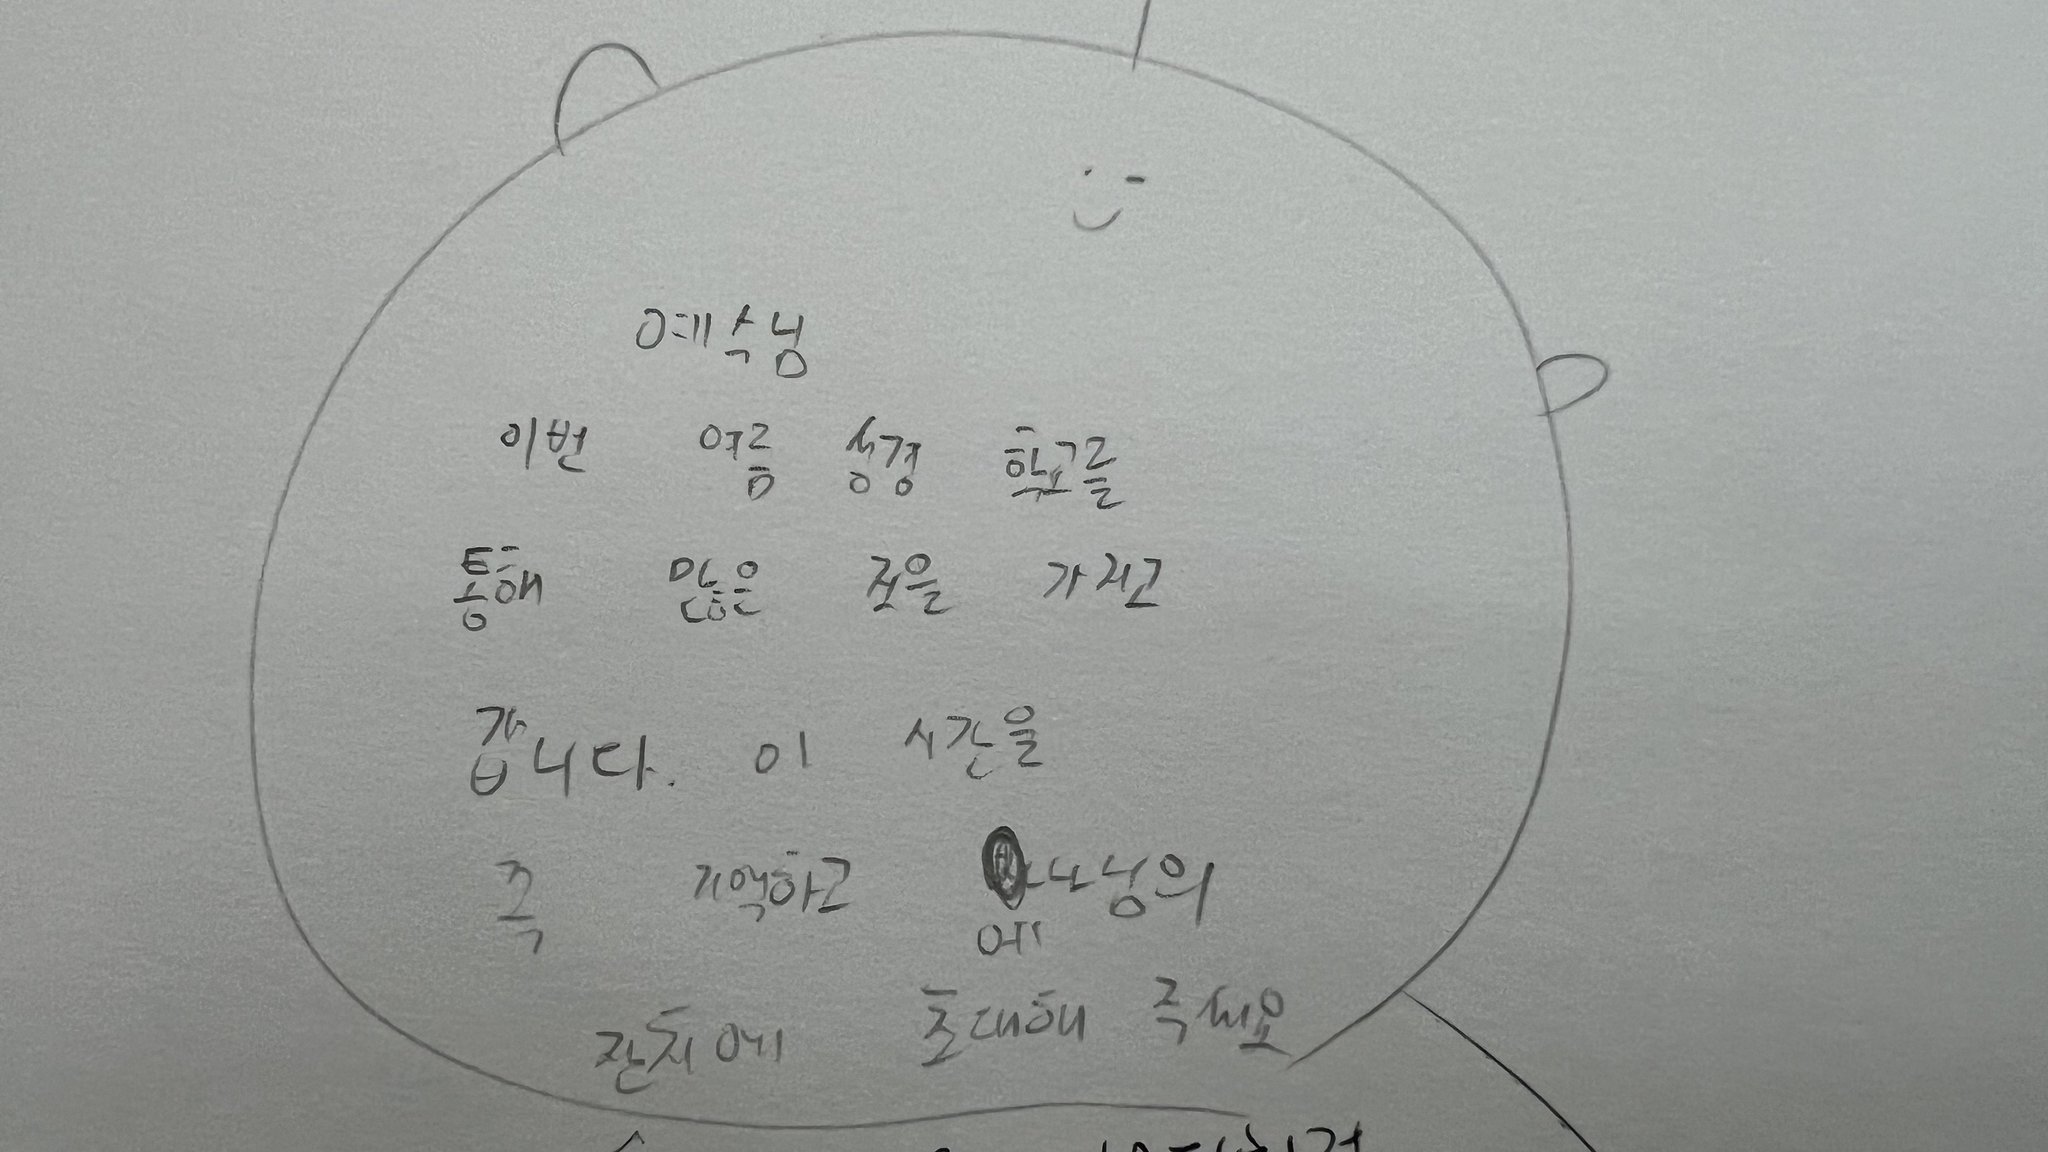 예수님
이번 여름 성경 학교를
통해 많은 것을 가지고
갑니다. 이 시간을
꼭 기억하고 수님의
예
잔치에 초대해 주세요